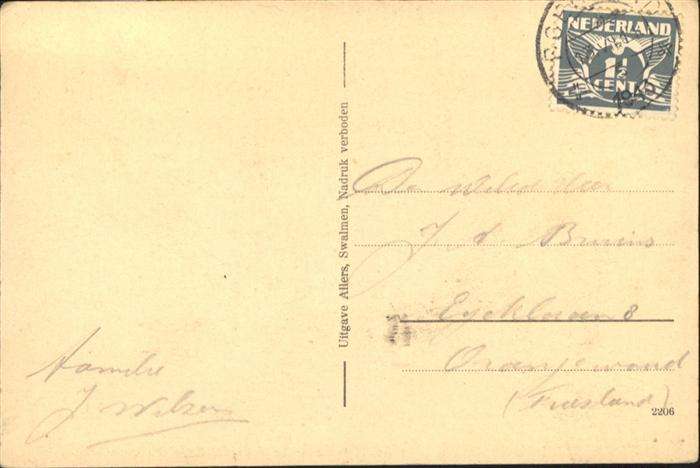 NEDERLAND
1½
CENT
Uitgave Allers, Swalmen, Nadruk verboden
De Heer
J d. Bruins
8
Oranjewoud
(Friesland)
Familie
J
2206